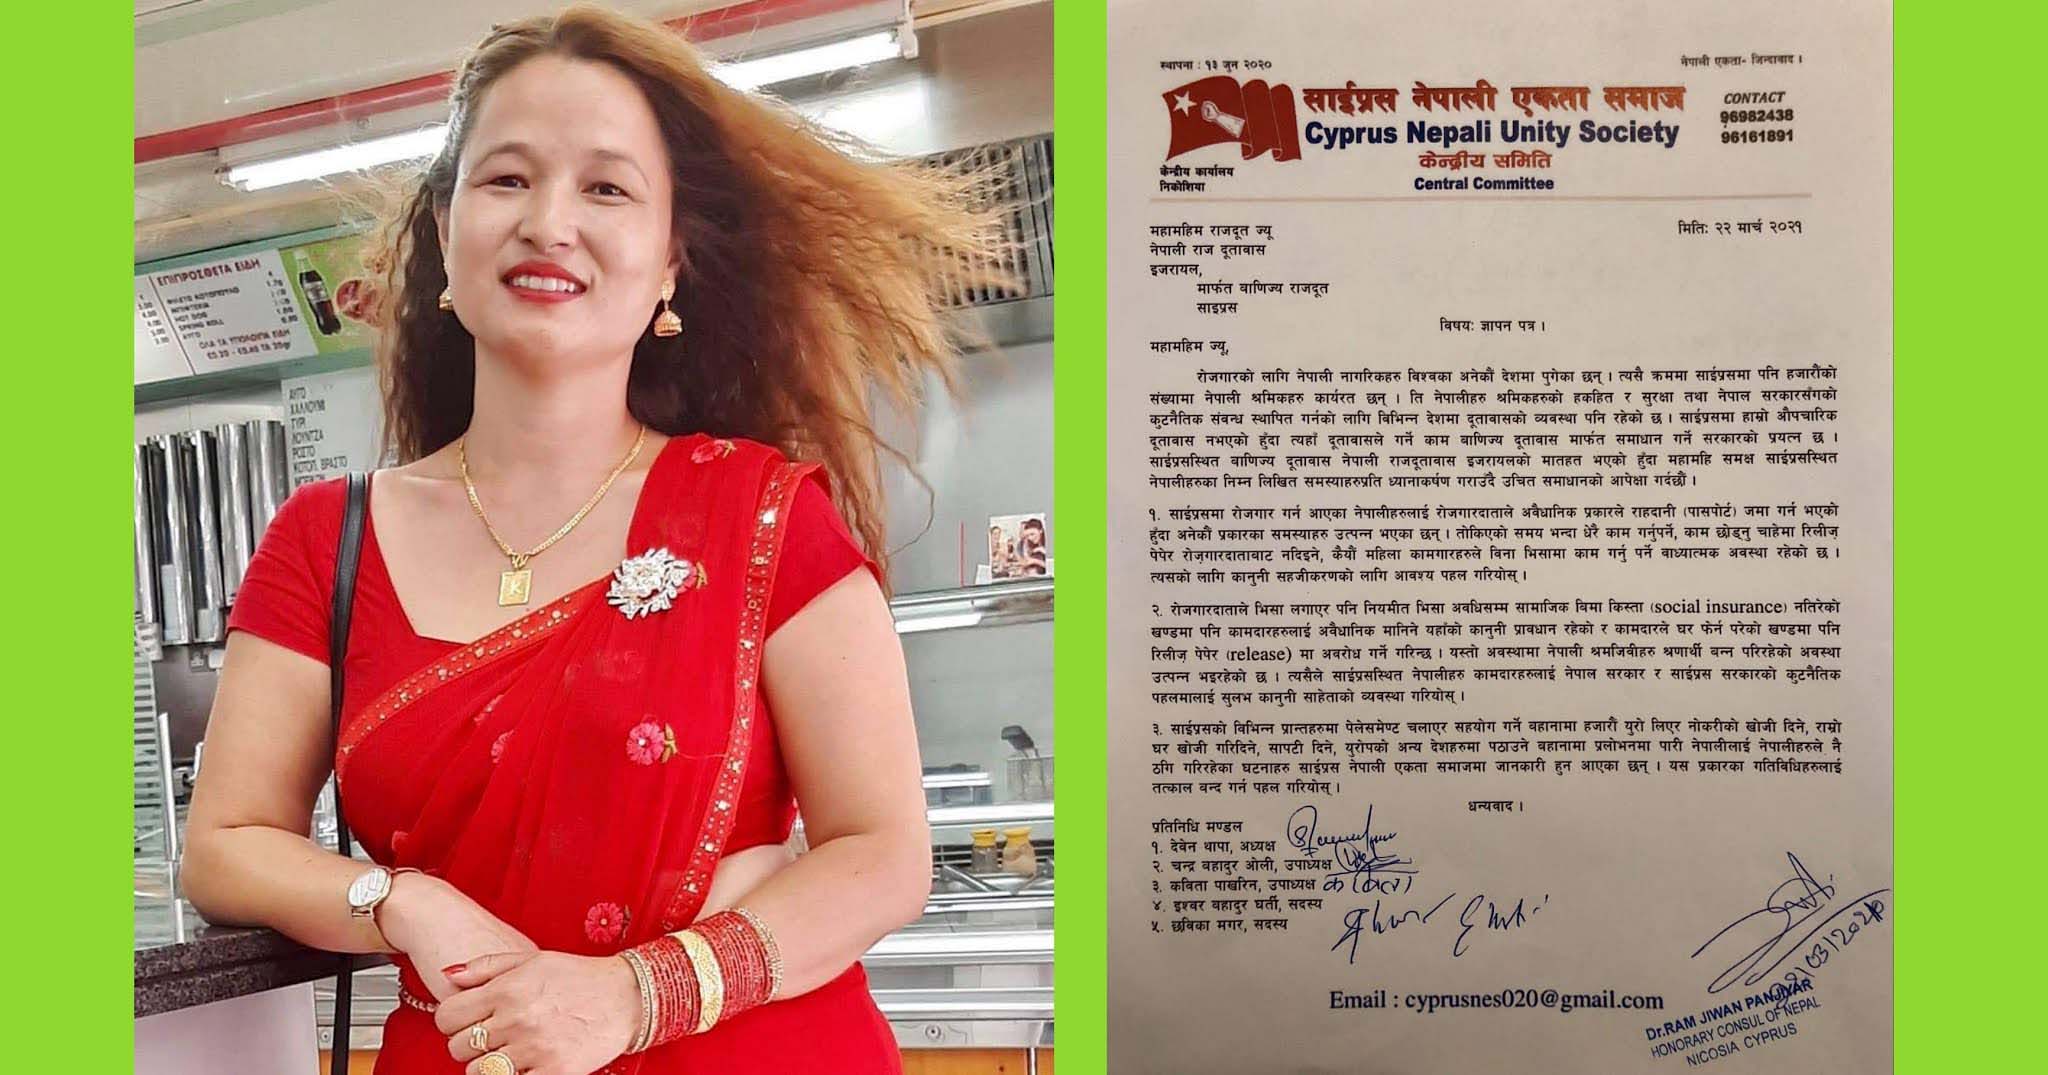 ΕΠΙΠΡΟΣΘΕΤΑ ΕΙΔΗ
ΦΙΛΕΤΟ ΚΟΤΟΠΟΥΛΟ
HOT DOG
SPRING ROLL
ΑΥΓΟ
ΟΛΑ ΤΑ ΥΠΟΛΟΙΠΑ ΕΙΔΗ
ΑΥΓΟ
ΧΑΛΛΟΥΜΙ
ΤΥΡΙ
ΛΟΥΝΤΖΑ
ΡΟΣΤΟ
ΚΟΤΟΠ. ΒΡΑΣΤΟ
K
स्थापना : १३ जुन २०२०
नेपाली एकता- जिन्दावाद ।
साईप्रस नेपाली एकता समाज
Cyprus Nepali Unity Society
केन्द्रीय समिति
Central Committee
CONTACT
96982438
96161891
केन्द्रीय कार्यालय
निकोशिया
मिति: २२ मार्च २०२१
महामहिम राजदूत ज्यू
नेपाली राज दूतावास
इजरायल,
मार्फत वाणिज्य राजदूत
साइप्रस
विषय: ज्ञापन पत्र ।
महामहिम ज्यू,
रोजगारको लागि नेपाली नागरिकहरु विश्वका अनेकौं देशमा पुगेका छन् । त्यसै क्रममा साईप्रसमा पनि हजारौंको
संख्यामा नेपाली श्रमिकहरु कार्यरत छन् । ति नेपालीहरु श्रमिकहरुको हकहित र सुरक्षा तथा नेपाल सरकारसँगको
कुटनैतिक संबन्ध स्थापित गर्नको लागि बिभिन्न देशमा दूतावासको व्यवस्था पनि रहेको छ । साईप्रसमा हाम्रो औपचारिक
दूतावास नभएको हुँदा त्यहाँ दूतावासले गर्ने काम बाणिज्य दूतावास मार्फत समाधान गर्ने सरकारको प्रयत्न छ ।
साईप्रसस्थित बाणिज्य दूतावास नेपाली राजदूतावास इजरायलको मातहत भएको हुँदा महामहि समक्ष साईप्रसस्थित
नेपालीहरुका निम्न लिखित समस्याहरुप्रति ध्यानाकर्षण गराउँदै उचित समाधानको आपेक्षा गर्दछौं ।
१. साईप्रसमा रोजगार गर्न आएका नेपालीहरुलाई रोजगारदाताले अवैधानिक प्रकारले राहदानी (पासपोर्ट) जमा गर्न भएको
हुँदा अनेकौं प्रकारका समस्याहरु उत्पन्न भएका छन् । तोकिएको समय भन्दा धेरै काम गर्नुपर्ने, काम छोड्नु चाहेमा रिलीज़
पेपेर रोज़गारदाताबाट नदिइने, कैयौं महिला कामगारहरुले विना भिसामा काम गर्नु पर्ने वाध्यात्मक अवस्था रहेको छ ।
त्यसको लागि कानुनी सहजीकरणको लागि आवश्य पहल गरियोस् ।
२. रोजगारदाताले भिसा लगाएर पनि नियमीत भिसा अवधिसम्म सामाजिक विमा किस्ता (social insurance) नतिरेको
खण्डमा पनि कामदारहरुलाई अवैधानिक मानिने यहाँको कानुनी प्रावधान रहेको र कामदारले घर फेर्न परेको खण्डमा पनि
रिलीज़ पेपेर (release) मा अवरोध गर्ने गरिन्छ । यस्तो अवस्थामा नेपाली श्रमजिवीहरु श्रणार्थी बन्न परिरहेको अवस्था
उत्पन्न भइरहेको छ । त्यसैले साईप्रसस्थित नेपालीहरु कामदारहरुलाई नेपाल सरकार र साईप्रस सरकारको कुटनैतिक
पहलमालाई सुलभ कानुनी साहेताको व्यवस्था गरियोस् ।
३. साईप्रसको बिभिन्न प्रान्तहरुमा पेलेसमेण्ट चलाएर सहयोग गर्ने वहानामा हजारौं युरो लिएर नोकरीको खोजी दिने, राम्रो
घर खोजी गरिदिने, सापटी दिने, युरोपको अन्य देशहरुमा पठाउने बहानामा प्रलोभनमा पारी नेपालीलाई नेपालीहरुले नै
ठगि गरिरहेका घटनाहरु साईप्रस नेपाली एकता समाजमा जानकारी हुन आएका छन् । यस प्रकारका गतिबिधिहरुलाई
तत्काल बन्द गर्न पहल गरियोस् ।
धन्यवाद ।
प्रतिनिधि मण्डल
१. देबेन थापा, अध्यक्ष
२. चन्द्र बहादुर ओली, उपाध्यक्ष
३. कविता पाखरिन, उपाध्यक्ष कविता
४. इश्वर बहादुर घर्ती, सदस्य
५. छविका मगर, सदस्य
Email : cyprusnes020@gmail.com
Dr.RAM JIWAN PANJIYAR
HONORARY CONSUL OF NEPAL
NICOSIA CYPRUS